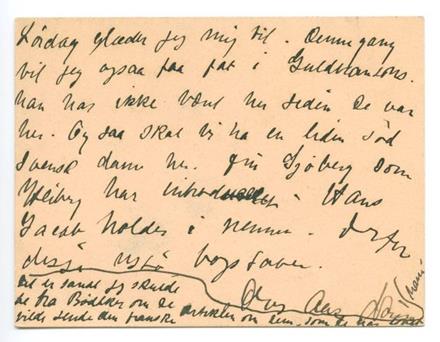 Lördag glæder jeg mig til. Denne gang
vil jeg ogsaa faa fat i Guldbransons.
han har ikke været her siden De var
her. Og saa skal vi ha en liden sød
svensk dame her. frk Sjöberg som
har introduceret. Hans
Jacob holder i pennen. Derfor
disse bogstaver.
Det er sandt jeg skulde
be fra Bödtker om De
vilde sende den franske artikelen om dem, som De har